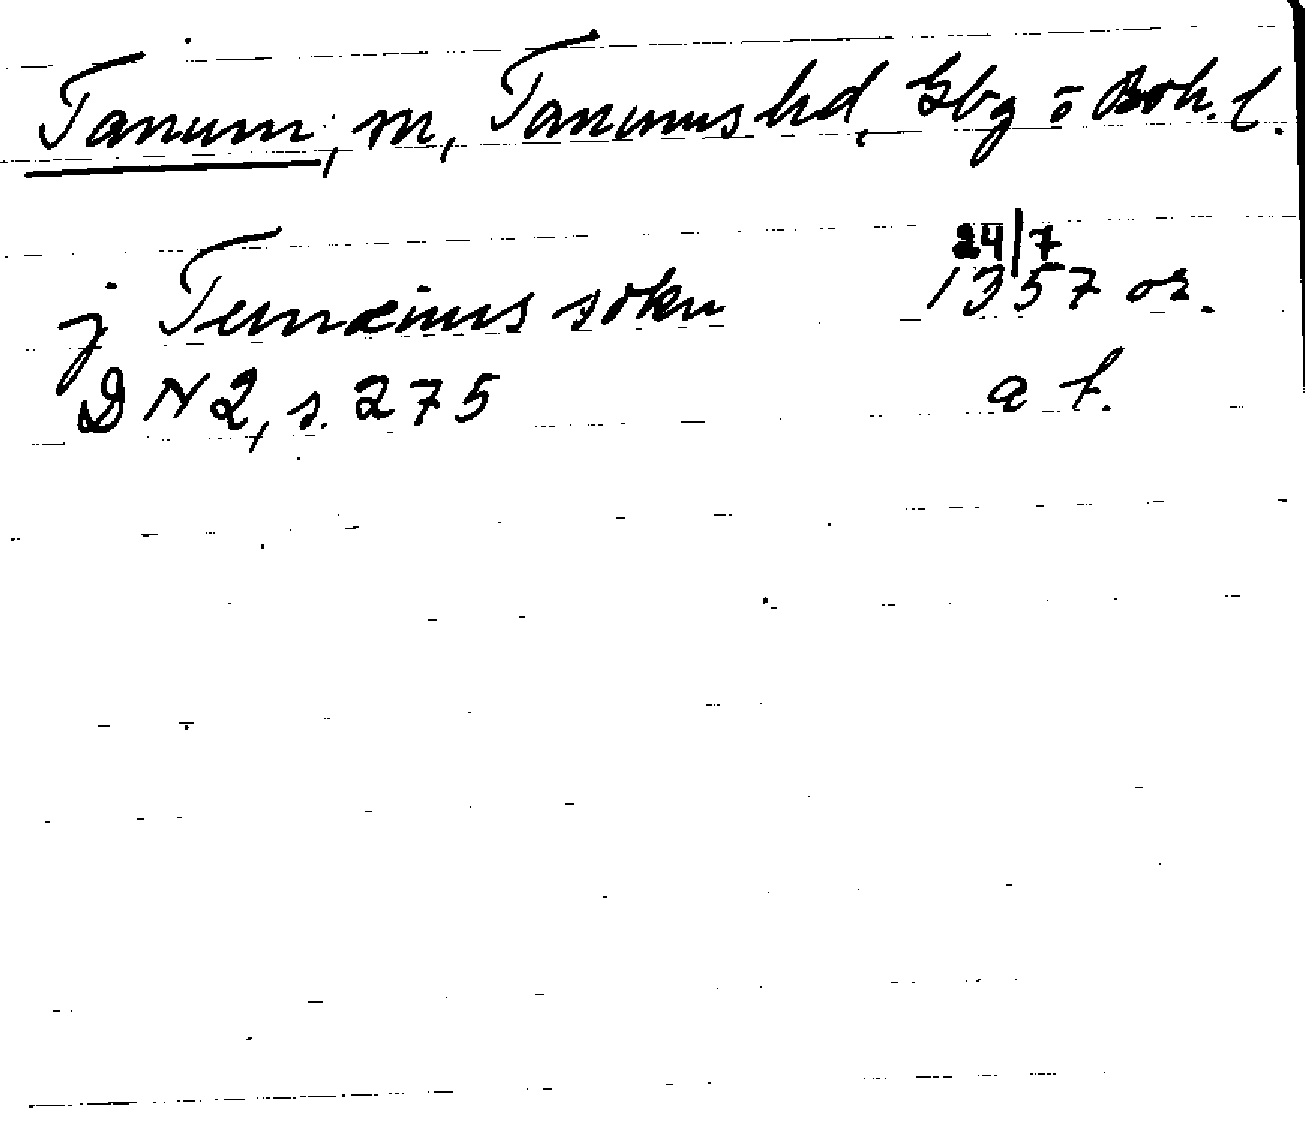 Tanum, m, Tanums hd, Gbg o Boh. l.
24/7
j Tunæims sokn 1357 or.
DN 2, s. 275 a f.